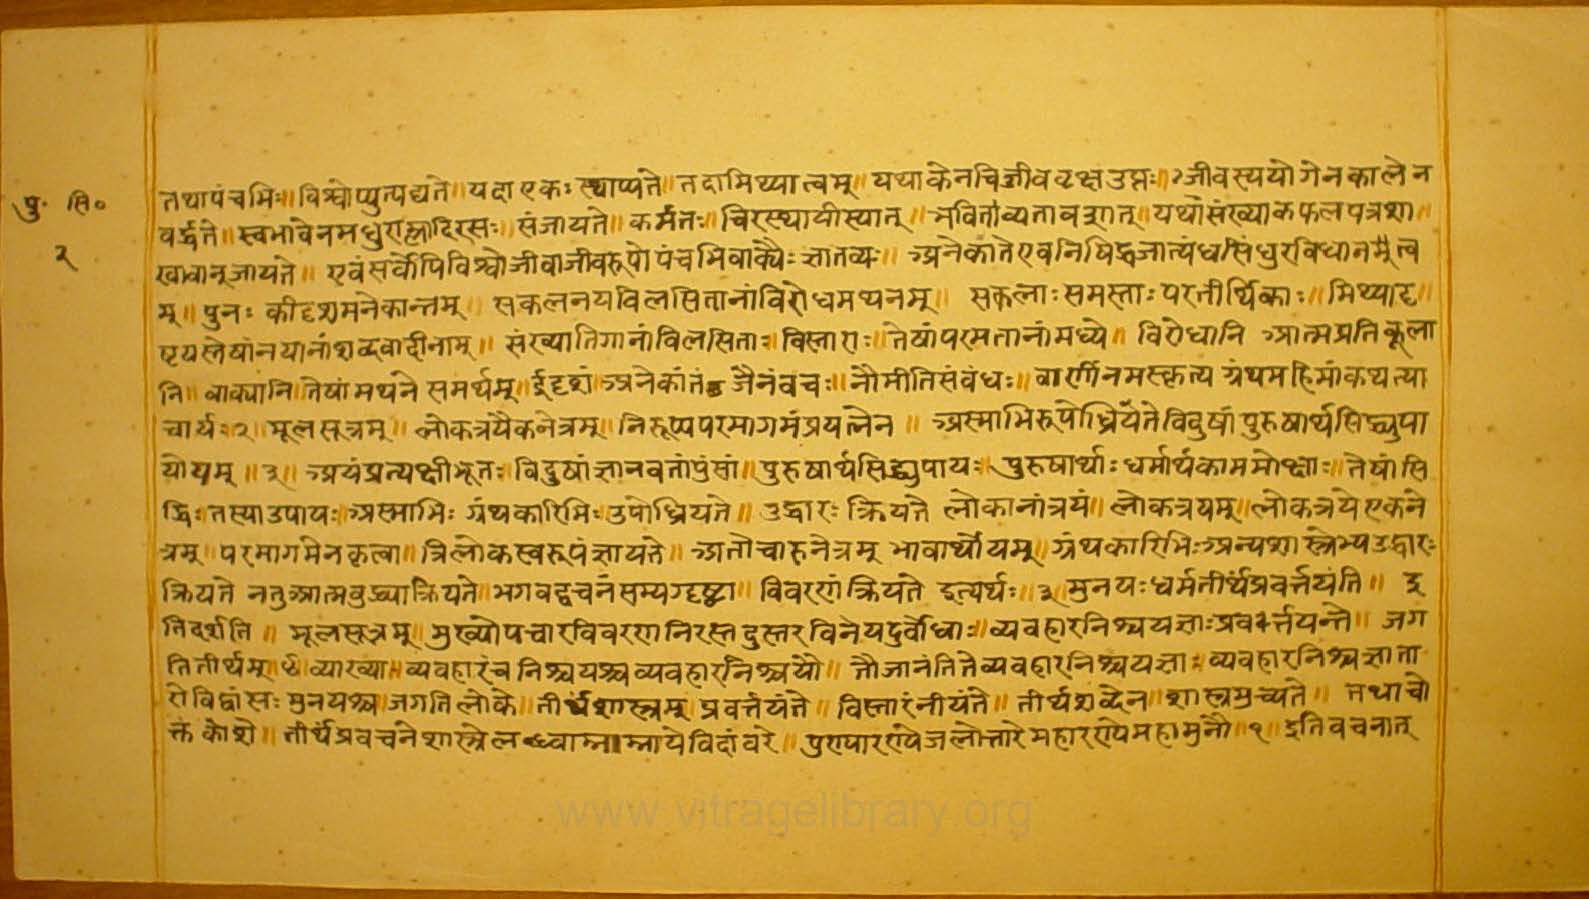 पु. सि०
२
तथापंचमिः॥ विश्वोप्युत्पद्यते॥ यदा एकः स्थाप्यते॥ तदामिथ्यात्वम्॥ यथाकेनचिज्जीववृक्ष उप्तः॥ जीवस्ययोगेनकालेन
वर्द्धते॥ स्वभावेनमधुराम्लादिरसः॥ संजायते॥ कर्मतः॥ चिरस्थायीस्यात्॥ भवितव्यतावशात्॥ यथासंख्याकफलपत्रशा॥
खावान्जायते॥ एवंसर्वोपिविश्वोजीवाजीवरूपोपंचमिवाक्यैः ज्ञातव्यः॥ अनेकांतेएवनिषिद्धजात्यंधसिंधुरविधानमृत्व
म्॥ पुनः कीदृशमनेकान्तम्॥ सकलनयविलसितानांविरोधमथनम्॥ सकलाः समस्ताः परतीर्थिकाः॥ मिथ्यादृ॥
ष्टयस्तेषांनयानांशब्दवादीनाम्॥ संख्यातिगानांविलसिताः॥ विस्ताराः॥ तेषांपरमतानांमध्ये॥ विरोधानि आत्मप्रतिकूला
नि॥ वाक्यानि॥ तेषांमथने समर्थम्॥ ईदृशं अनेकांतं जैनंवचः॥ नौमीतिसंबंधः॥ वाणीनमस्कृत्य ग्रंथमहिमांकथत्या
चार्यः २॥ मूलसूत्रम्॥ लोकत्रयैकनेत्रम्॥ निरूप्यपरमागमंप्रयत्नेन॥ अस्माभिरुपोध्रियतेविदुषां पुरुषार्थसिद्ध्युपा
योयम्॥ ३॥ अयंप्रत्यक्षीभूतः॥ विदुषांज्ञानवतांपुंसां॥ पुरुषार्थसिद्ध्युपायः॥ पुरुषार्थाः धर्मार्थकाममोक्षाः॥ तेषांसि
द्धिः तस्याउपायः॥ अस्माभिः ग्रंथकारिभिः उपोध्रियते॥ उद्धारः क्रियते लोकानांत्रयं॥ लोकत्रयम्॥ लोकत्रये एकने
त्रम्॥ परमागमेनकृत्वा॥ त्रिलोकस्वरूपंज्ञायते॥ अतोचारुनेत्रम् भावार्थोयम्॥ ग्रंथकारिभिः अन्यशास्त्रेभ्यउद्धारः
क्रियते नतुआत्मबुद्ध्याक्रियते॥ भगवद्वचनंसम्यग्दृष्ट्वा॥ विवरणंक्रियते इत्यर्थः॥ ३॥ मुनयः धर्मतीर्थंप्रवर्त्तयंति॥ इ
तिदर्शति॥ मूलसूत्रम्॥ मुख्योपचारविवरणनिरस्तदुस्तरविनेयदुर्बोधाः॥ व्यवहारनिश्चयज्ञाः प्रवर्त्तयन्ते॥ जग
तितीर्थम्॥ ४॥ व्याख्या॥ व्यवहारंचनिश्चयश्चव्यवहारनिश्चयौ॥ तौजानंतितेव्यवहारनिश्चयज्ञाः॥ व्यवहारनिश्चज्ञाता
रोविद्वांसः मुनयश्च॥ जगतिलोके॥ तीर्थंशास्त्रम् प्रवर्त्तयंते॥ विस्तारंनीयंते॥ तीर्थशब्देन॥ शास्त्रमुच्यते॥ तथाचो
क्तं कोशे॥ तीर्थंप्रवचनेशास्त्रेलब्ध्वाम्नाम्नायेविदांवरे॥ पुण्यारण्येजलोत्तारेमहारण्येमहामुनौ॥ १॥ इतिवचनात्
www.vitragelibrary.org